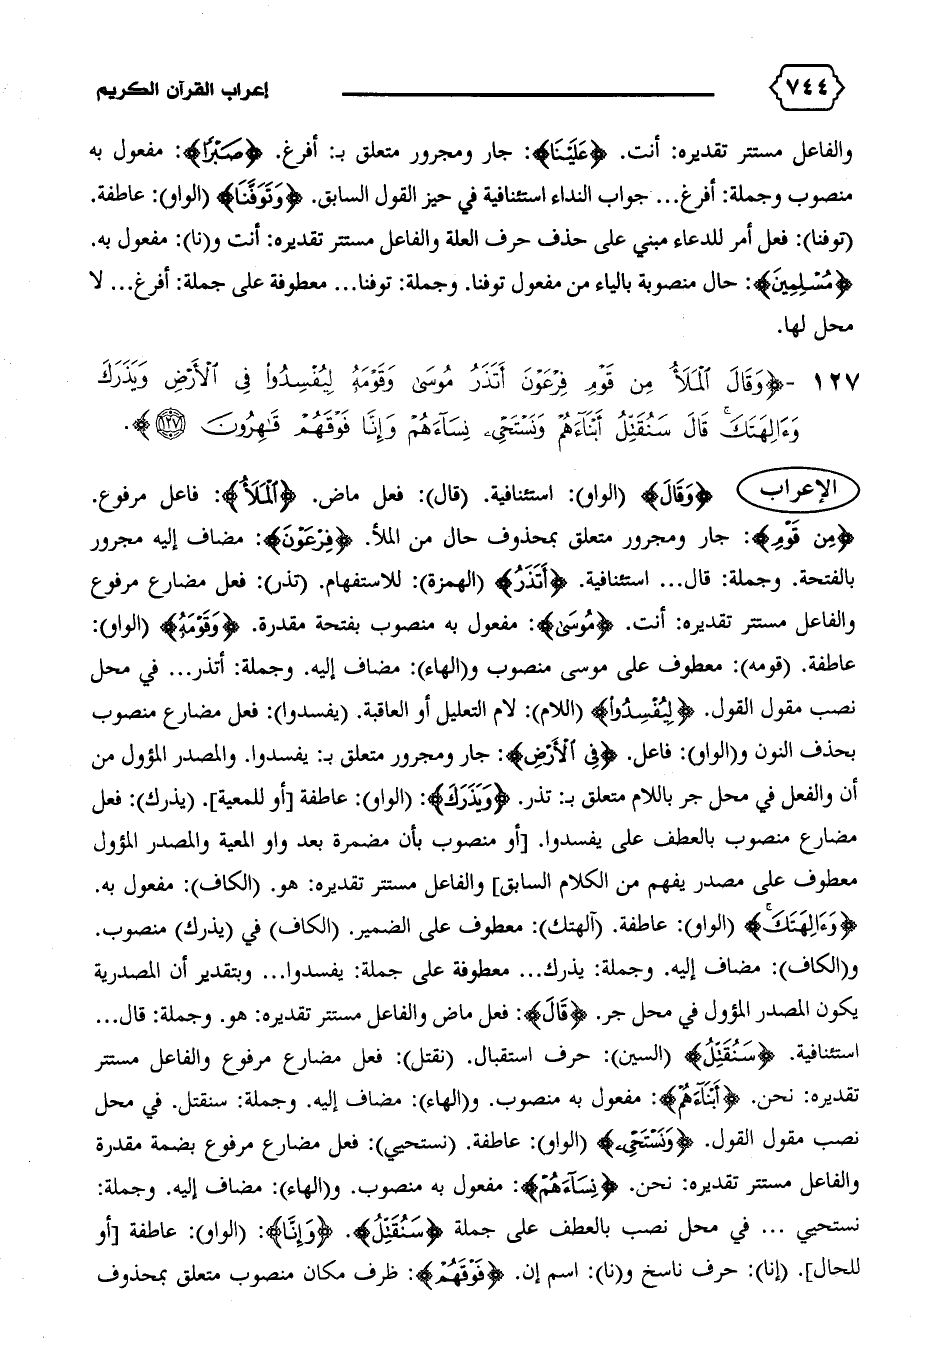 ٧٤٤ إعراب القرآن الكريم
والفاعل مستتر تقديره: أنت. ﴿عَلَيْنَا﴾: جار ومجرور متعلق بـ: أفرغ. ﴿صَبْرًا﴾: مفعول به
منصوب وجملة: أفرغ... جواب النداء استئنافية في حيز القول السابق. ﴿وَتَوَفَّنَا﴾ (الواو): عاطفة.
(توفنا): فعل أمر للدعاء مبني على حذف حرف العلة والفاعل مستتر تقديره: أنت و(نا): مفعول به.
﴿مُسْلِمِينَ﴾: حال منصوبة بالياء من مفعول توفنا. وجملة: توفنا... معطوفة على جملة: أفرغ... لا
محل لها.
١٢٧ -﴿وَقَالَ ٱلْمَلَأُ مِن قَوْمِ فِرْعَوْنَ أَتَذَرُ مُوسَىٰ وَقَوْمَهُۥ لِيُفْسِدُوا۟ فِى ٱلْأَرْضِ وَيَذَرَكَ
وَءَالِهَتَكَ ۚ قَالَ سَنُقَتِّلُ أَبْنَآءَهُمْ وَنَسْتَحْىِۦ نِسَآءَهُمْ وَإِنَّا فَوْقَهُمْ قَـٰهِرُونَ ﴿١٢٧﴾﴾.
الإعراب ﴿وَقَالَ﴾ (الواو): استئنافية. (قال): فعل ماض. ﴿ٱلْمَلَأُ﴾: فاعل مرفوع.
﴿مِن قَوْمِ﴾: جار ومجرور متعلق بمحذوف حال من الملأ. ﴿فِرْعَوْنَ﴾: مضاف إليه مجرور
بالفتحة. وجملة: قال... استئنافية. ﴿أَتَذَرُ﴾ (الهمزة): للاستفهام. (تذر): فعل مضارع مرفوع
والفاعل مستتر تقديره: أنت. ﴿مُوسَىٰ﴾: مفعول به منصوب بفتحة مقدرة. ﴿وَقَوْمَهُۥ﴾ (الواو):
عاطفة. (قومه): معطوف على موسى منصوب و(الهاء): مضاف إليه. وجملة: أتذر... في محل
نصب مقول القول. ﴿لِيُفْسِدُوا۟﴾ (اللام): لام التعليل أو العاقبة. (يفسدوا): فعل مضارع منصوب
بحذف النون و(الواو): فاعل. ﴿فِى ٱلْأَرْضِ﴾: جار ومجرور متعلق بـ: يفسدوا. والمصدر المؤول من
أن والفعل في محل جر باللام متعلق بـ: تذر. ﴿وَيَذَرَكَ﴾: (الواو): عاطفة [أو للمعية]. (يذرك): فعل
مضارع منصوب بالعطف على يفسدوا. [أو منصوب بأن مضمرة بعد واو المعية والمصدر المؤول
معطوف على مصدر يفهم من الكلام السابق] والفاعل مستتر تقديره: هو. (الكاف): مفعول به.
﴿وَءَالِهَتَكَ ۚ﴾ (الواو): عاطفة. (آلهتك): معطوف على الضمير. (الكاف) في (يذرك) منصوب.
و(الكاف): مضاف إليه. وجملة: يذرك... معطوفة على جملة: يفسدوا... وبتقدير أن المصدرية
يكون المصدر المؤول في محل جر. ﴿قَالَ﴾: فعل ماض والفاعل مستتر تقديره: هو. وجملة: قال...
استئنافية. ﴿سَنُقَتِّلُ﴾ (السين): حرف استقبال. (نقتل): فعل مضارع مرفوع والفاعل مستتر
تقديره: نحن. ﴿أَبْنَآءَهُمْ﴾: مفعول به منصوب. و(الهاء): مضاف إليه. وجملة: سنقتل. في محل
نصب مقول القول. ﴿وَنَسْتَحْىِۦ﴾ (الواو): عاطفة. (نستحيي): فعل مضارع مرفوع بضمة مقدرة
والفاعل مستتر تقديره: نحن. ﴿نِسَآءَهُمْ﴾: مفعول به منصوب. و(الهاء): مضاف إليه. وجملة:
نستحيي ... في محل نصب بالعطف على جملة ﴿سَنُقَتِّلُ﴾. ﴿وَإِنَّا﴾: (الواو): عاطفة [أو
للحال]. (إنا): حرف ناسخ و(نا): اسم إن. ﴿فَوْقَهُمْ﴾: ظرف مكان منصوب متعلق بمحذوف